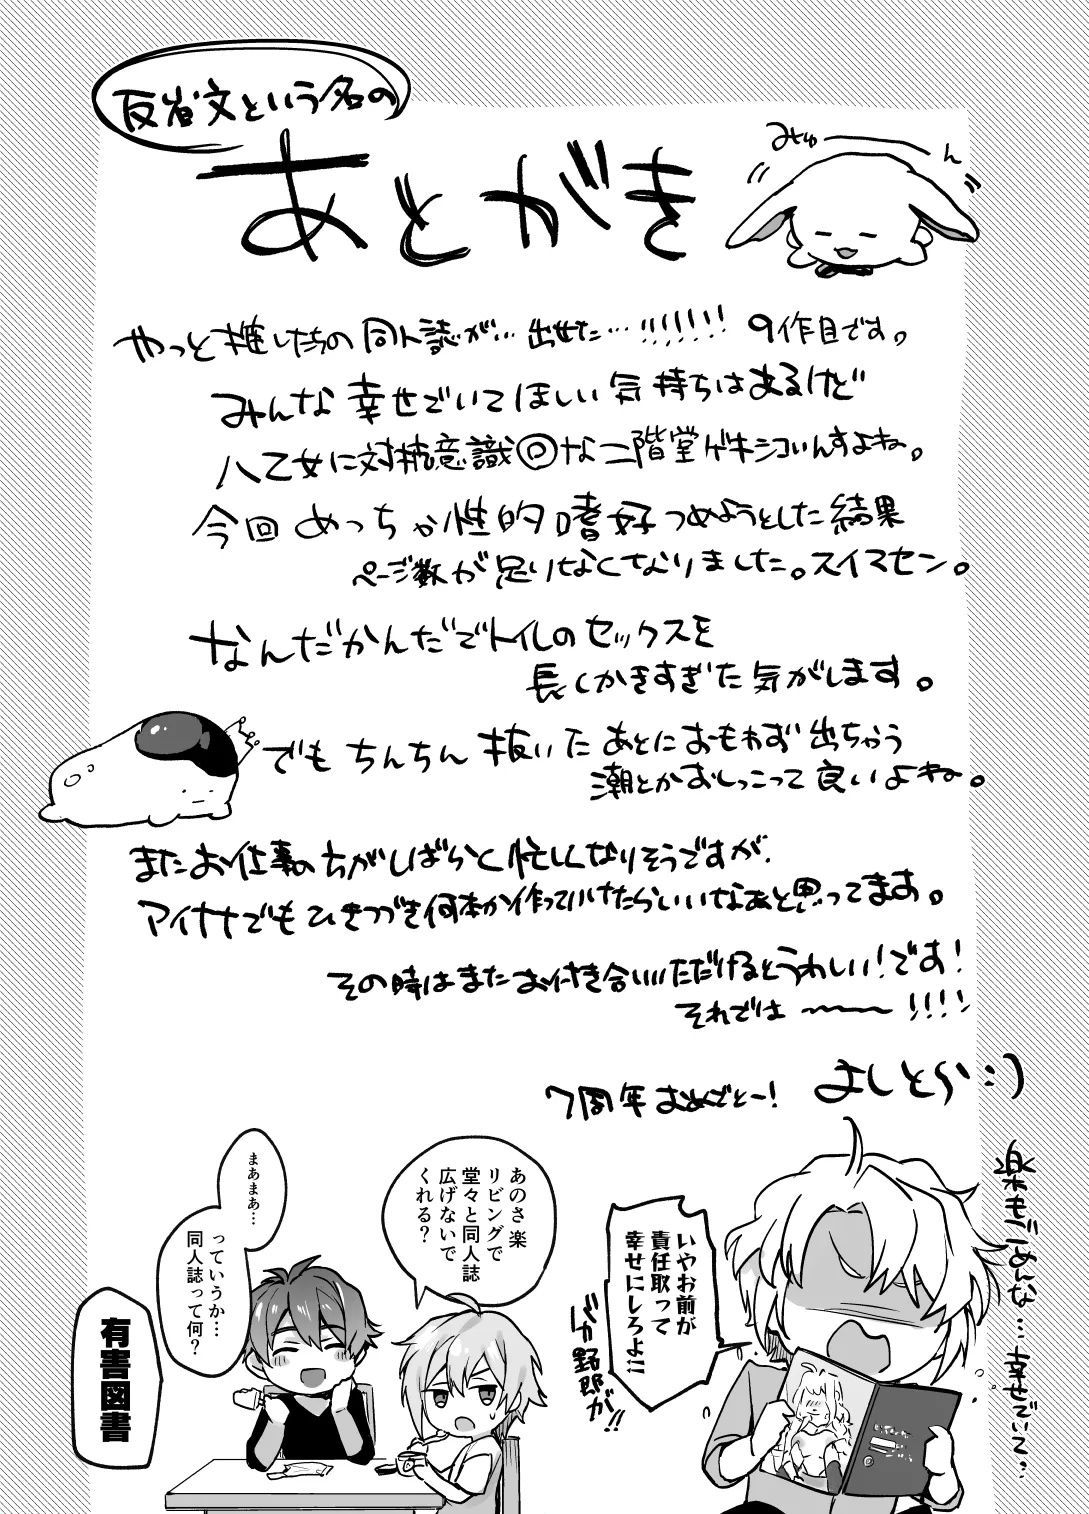 反省文という名の
あとがき
みゅーーん
やっと推したちの同人誌が…出せた…!!!!!!! 9作目です。
みんな幸せでいてほしい気持ちはあるけど
八乙女に対抗意識◎な二階堂ゲキシコいんすよね。
今回めっちゃ性的嗜好つめようとした結果
ページ数が足りなくなりました。スイマセン。
なんだかんだでトイレのセックスを
長くかきすぎた気がします。
でもちんちん抜いたあとにおもわず出ちゃう
潮とかおしっこって良いよね。
またお仕事の方がしばらく忙しくなりそうですが、
アイナナでもひきつづき何本か作っていけたらいいなぁと思ってます。
その時はまたお付き合いいただけるとうれしい!です!
それでは〜〜〜!!!!
7周年おめでとー!
よしとら:)
楽もごめんな…幸せでいて?
いやお前が
責任取って
幸せにしろよ!!
バカ野郎が!!
あのさ楽
リビングで
堂々と同人誌
広げないで
くれる?
まあまあ…
っていうか…
同人誌って何?
有害図書